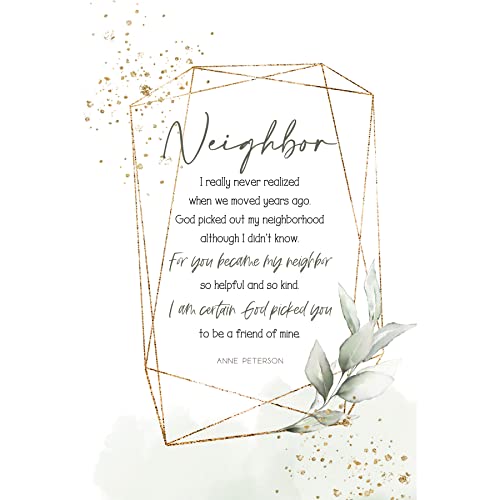 Neighbor
I really never realized
when we moved years ago.
God picked out my neighborhood
although I didn't know.
For you became my neighbor
so helpful and so kind.
I am certain God picked you
to be a friend of mine.
ANNE PETERSON